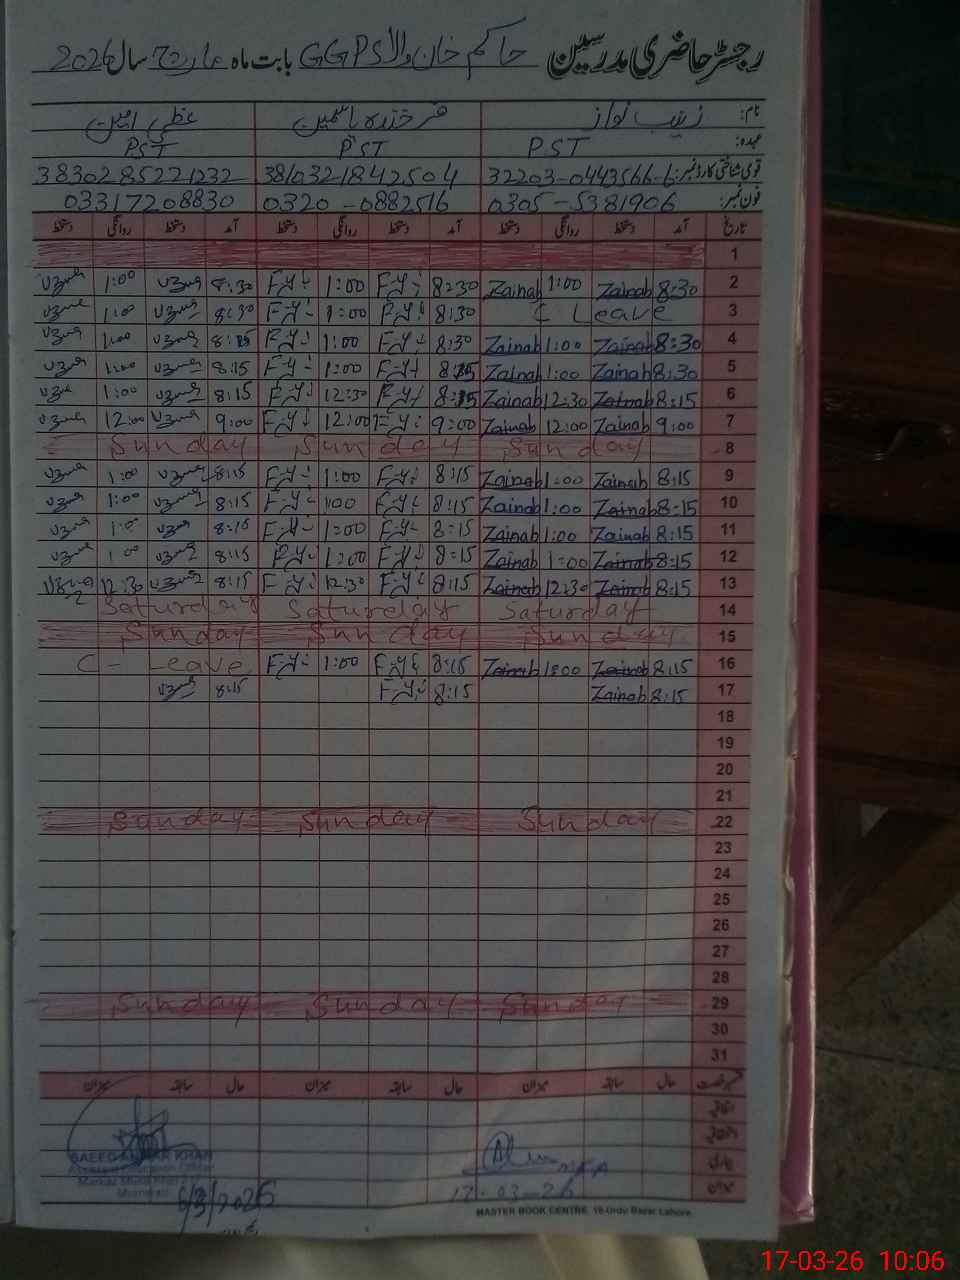 رجسٹر حاضری مدرسین حاکم خان والا GGPS بابت ماہ مارچ سال 2026
نام: زینب نواز فرخندہ یاسمین عظمی امین
عہدہ: PST PST PST
قومی شناختی کارڈ نمبر: 32203-0443566-6 3810321842504 3830285221232
فون نمبر: 0305-5381906 0320-0882516 03317208830
تاریخ آمد دستخط روانگی دستخط آمد دستخط روانگی دستخط آمد دستخط روانگی دستخط
1
2 8:30 Zainab 1:00 Zainab 8:30 1:00 8:30 1:00
3 C Leave 8:30 1:00 8:30 1:00
4 8:30 Zainab 1:00 Zainab 8:30 1:00 8:15 1:00
5 8:30 Zainab 1:00 Zainab 8:15 1:00 8:15 1:00
6 8:15 Zainab 12:30 Zainab 8:15 12:30 8:15 1:00
7 9:00 Zainab 12:00 Zainab 9:00 12:00 9:00 12:00
8 Sunday Sunday Sunday
9 8:15 Zainab 1:00 Zainab 8:15 1:00 8:15 1:00
10 8:15 Zainab 1:00 Zainab 8:15 1:00 8:15 1:00
11 8:15 Zainab 1:00 Zainab 8:15 1:00 8:15 1:00
12 8:15 Zainab 1:00 Zainab 8:15 1:00 8:15 1:00
13 8:15 Zainab 12:30 Zainab 8:15 12:30 8:15 12:30
14 Saturday Saturday Saturday
15 Sunday Sunday Sunday
16 8:15 Zainab 1:00 Zainab 8:15 1:00 C- Leave
17 8:15 Zainab 8:15 8:15
18
19
20
21
22 Sunday Sunday Sunday
23
24
25
26
27
28
29 Sunday Sunday Sunday
30
31
حال سابقہ میزان حال سابقہ میزان حال سابقہ میزان
SAEED KHAN
Assistant Education Officer
Markaz
6/3/2026
MEA
17-03-26
MASTER BOOK CENTRE, 16-Urdu Bazar Lahore.
17-03-26 10:06